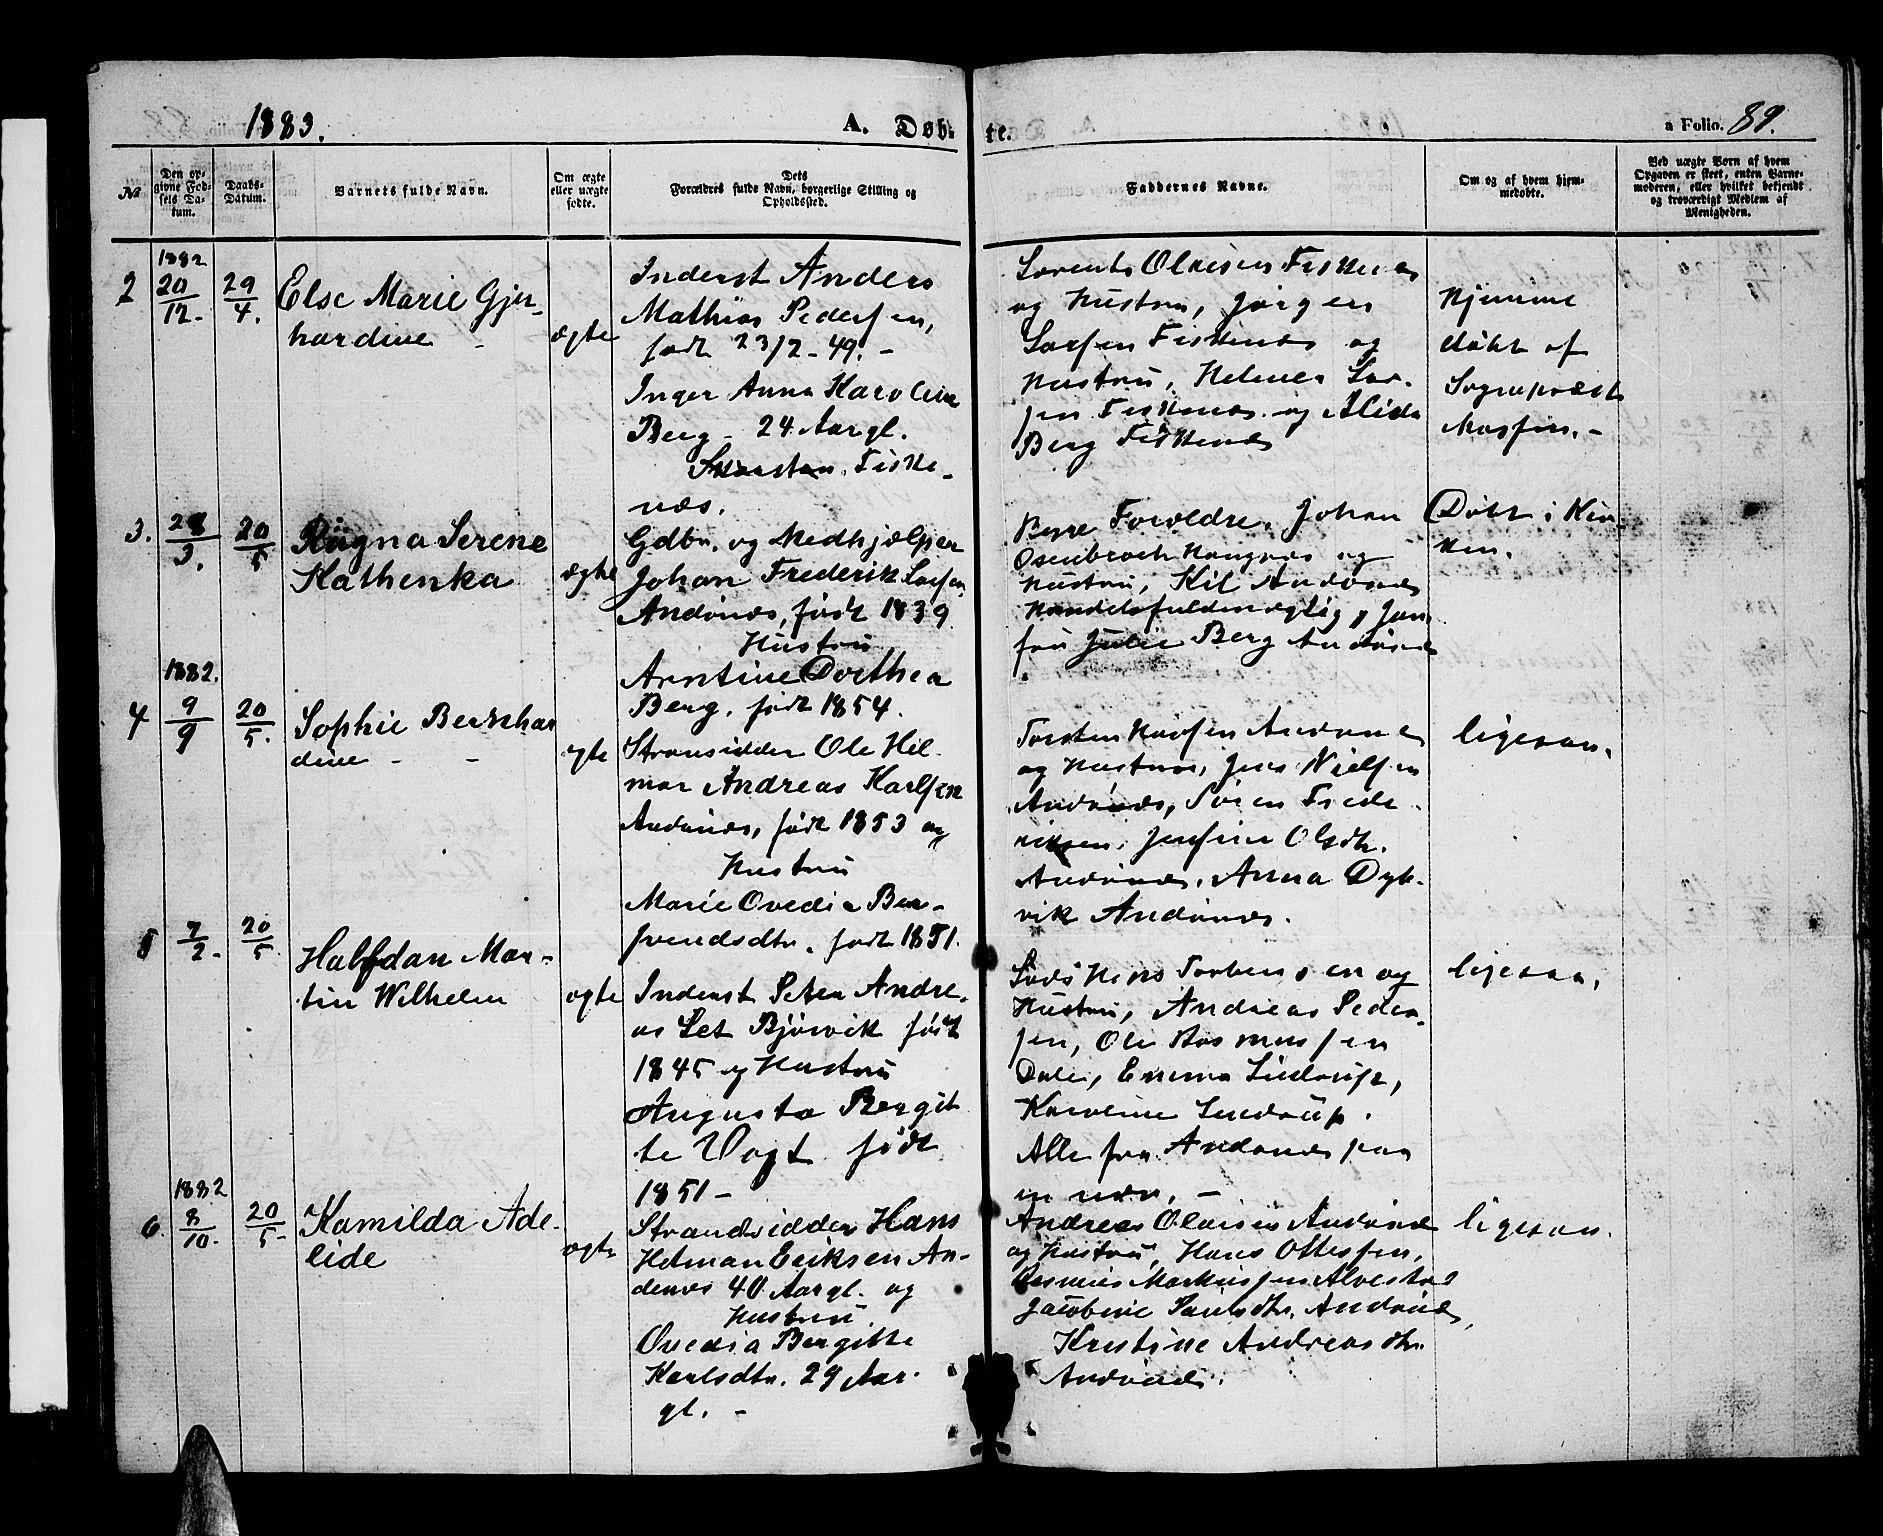 1883.
A. Døb-
te.
a Folio. 89.
№
Den op-
givne Fød-
sels Da-
tum.
Daabs-
Datum.
Barnets fulde Navn.
Om ægte
eller uægte
fødte.
Dets
Forældres fulde Navn, borgerlige Stilling og
Opholdssted.
Faddernes Navne.
Om og af hvem hjem-
medøbte.
Ved uægte Børn af hvem
Opgaven er skeet, enten Barne-
moderen, eller hvilket bekjendt
og troværdigt Medlem af
Menigheden.
2
1882
20/12.
29/4.
Else Marie Gjer-
hardine -
ægte
Inderst Anders
Mathias Pedersen,
født 23/2-49. -
Inger Anna Karoline
Berg - 24 Aar gl.
Fiske-
næs.
Lorents Olaisen Fiskenes
og Hustru, Jørgen
Larsen Fiskenes og
Hustru, Helmer Lar-
sen Fiskenes og Alida
Berg Fiskenes
Hjemme
døbt af
Sognepræst
3.
3.
20/5
Ragna Serene
Kathenka
ægte
Gdbr. og Medhjælper
Johan Frederik Larsen
Andønæs, født 1839
Hustru
Arntine Dorthea
Berg, født 1854.
Forældre, Johan
og
Hustru, Kil Andønes
Handelsfuldmægtig, Jom-
fru Julie Berg Andønes
Døbt i Kir-
ken.
4
1882.
9/9
20/5.
Sophie Bernhar
dine - -
ægte
Stransidder Ole Hel-
mer Andreas Karlsen
Andønæs, født 1853 og
Hustru
Marie Ovedia Ber-
født 1851.
Torsten Andønes
og Hustru, Jens Nielsen
Andønæs, Søren Frede-
riksen, Jensine Olsdtr.
Andønæs, Anna Dyb-
vik Andønæs.
ligesaa.
5
7/2.
20/5
Halfdan Mar-
tin Wilhelm
ægte
Inderst Peter Andre-
as Set Bjørvik født
1845 og Hustru
Augusta Bergit
te Vogt født
1851 -
Torbensen og
Hustru, Andreas Peder-
sen, Ole Rasmussen
Dale, Emma Lindrup,
Karoline Lindrup.
Alle fra Andønæs paa
en nær. -
ligesaa.
6.
1882
8/10.
20/5.
Kamilda Ade-
lide
ægte
Strandsidder Hans
Hetman Eriksen An-
denes 40 Aar gl. og
Hustru
Ovedia Bergitte
Karlsdtr. 29 Aar
gl. -
Andreas Olaisen Andønes
og Hustru, Hans Ottesen,
Rasmus Markussen Alvestad
Jacobine Andønes,
Kristine Andreasdtr.
Andønes.
ligesaa.